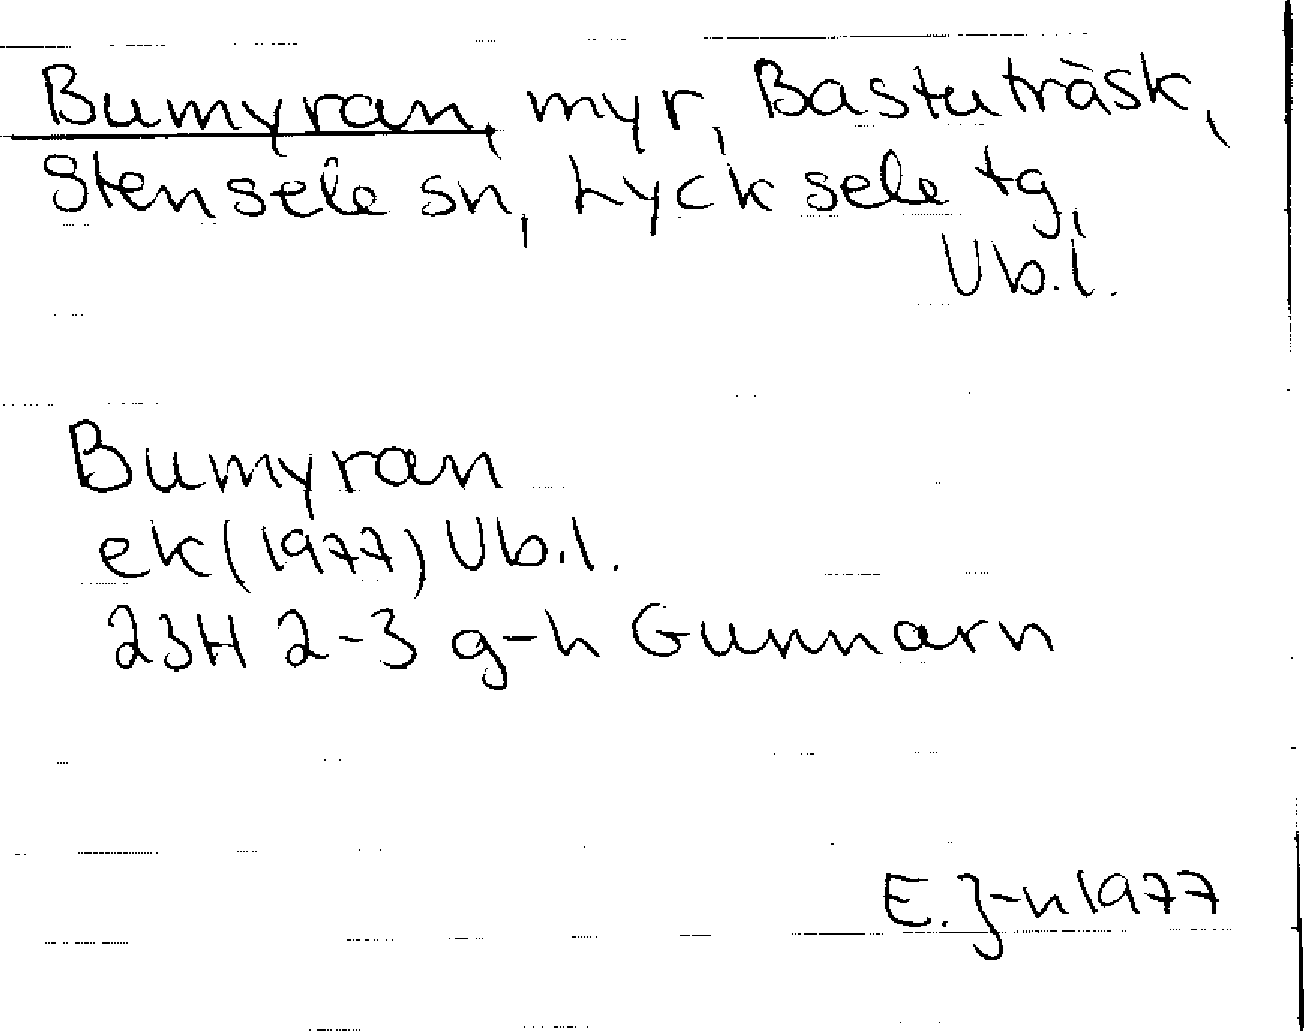 Bumyran, myr, Bastuträsk,
Stensele sn, Lycksele tg,
Vb.l.
Bumyran
ek (1977) Vb.l.
23H 2-3 g-h Gunnarn
E.J-n 1977